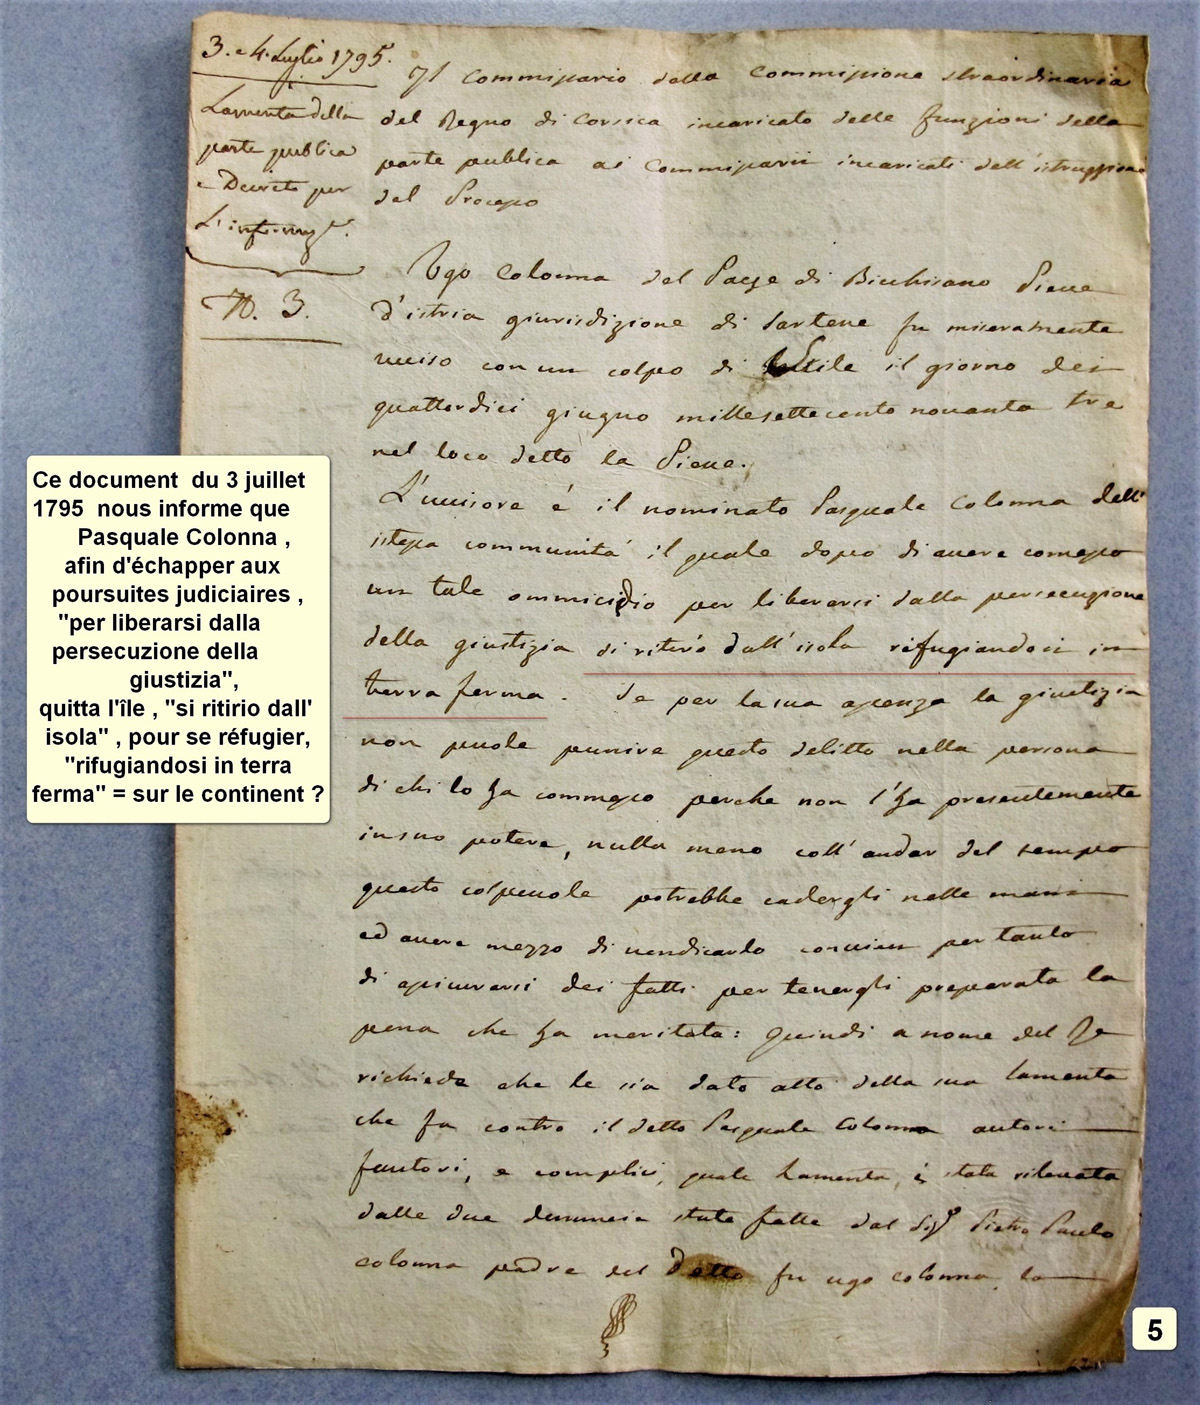 3. e 4. Luglio 1795.
Lamenta della
parte publica
e Decreto per
L'
N. 3.
Il Commissario della Commissione straordinaria
del Regno di Corsica incaricato delle funzioni della
parte publica ai Commissarii incaricati dell'istruzzione
del Processo
Ugo Colonna del Paese di Bicchisano Pieve
d'istria giurisdizione di Sartene fu miseramente
ucciso con un colpo di Stile il giorno dei
quattordici giugno millesettecento novanta tre
nel loco detto la Pieve.
L'uccisore é il nominato Pasquale Colonna dell'
istessa communitá il quale dopo di avere comesso
un tale ommicidio per liberarsi dalla persecuzione
della giustizia si ritiró dall'isola rifugiandosi in
terra ferma. Se per la sua assenza la giustizia
non puole punire questo delitto nella persona
di chi lo ha commesso perche non l'ha presentemente
in suo potere, nulla meno coll'andar del tempo
questo colpevole potrebbe cadergli nelle mani
ed avere mezzo di vendicarlo convien per tanto
di assicurarsi dei fatti per tenergli preparata la
pena che ha meritata: quindi a nome del Re
richiede che le sia dato atto della sua lamenta
che fa contro il detto Pasquale Colonna autori
fautori, e complici, quale Lamenta, é stata rilevata
dalle due denuncie state fatte dal Sigr Pietro Paulo
colonna padre del Detto fu ugo colonna, la
Ce document du 3 juillet
1795 nous informe que
Pasquale Colonna ,
afin d'échapper aux
poursuites judiciaires ,
"per liberarsi dalla
persecuzione della
giustizia",
quitta l'île , "si ritirio dall'
isola" , pour se réfugier,
"rifugiandosi in terra
ferma" = sur le continent ?
5